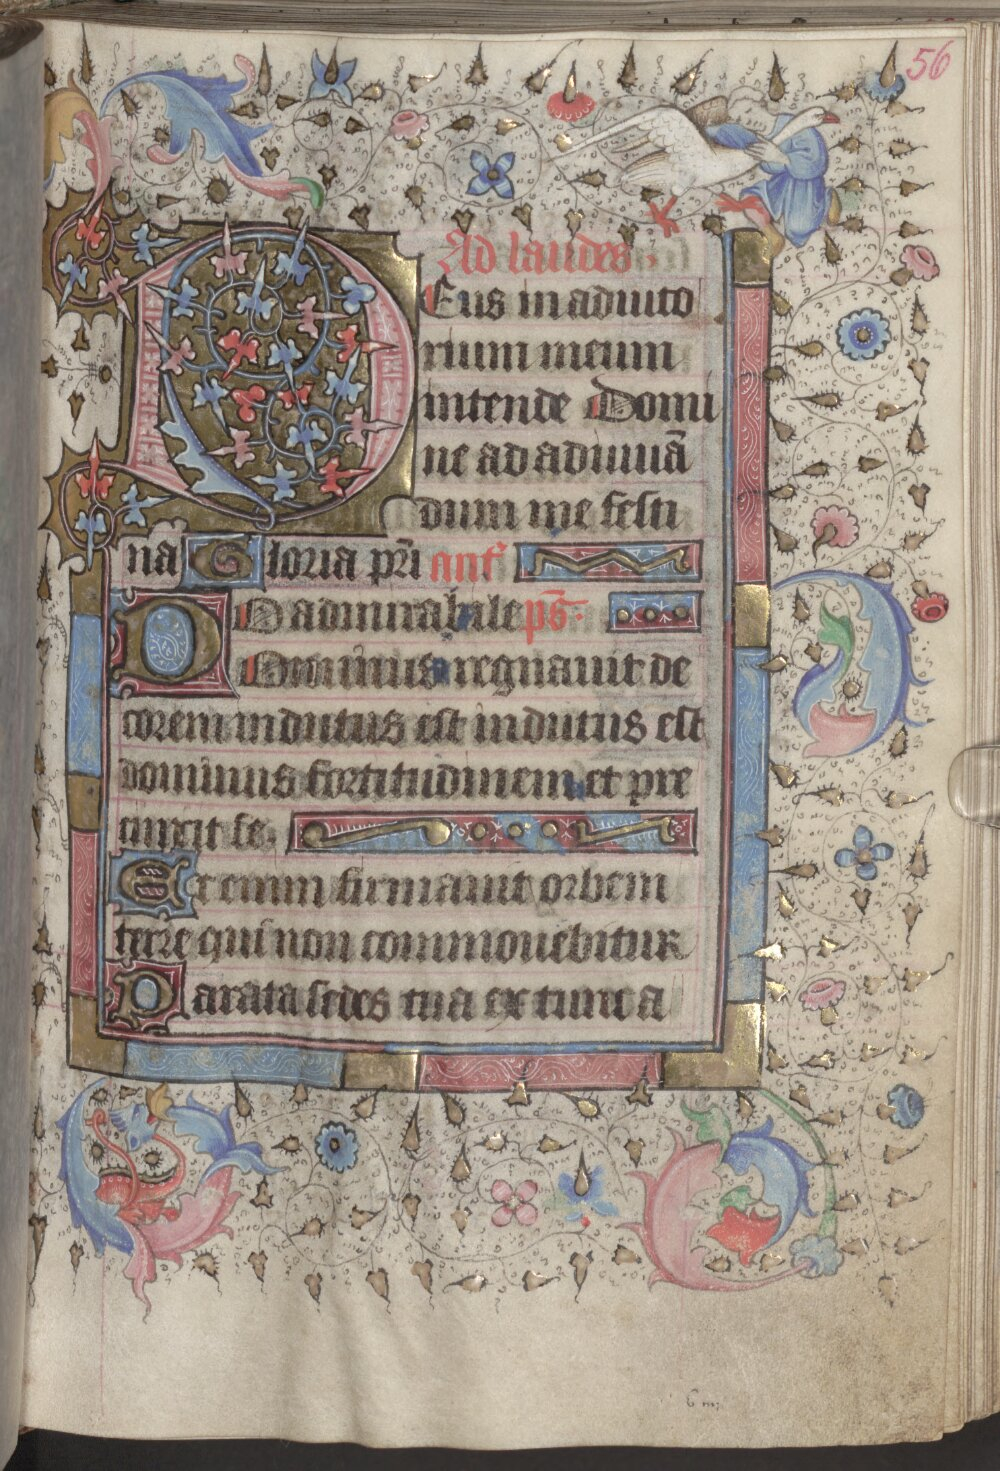 56
Ad laudes
Deus in adiuto
rium meum
intende Domi
ne ad adiuuā
dum me festi
na Gloria pr̄i ant̄
O admirabile ps̄.
Dominus regnauit de
corem indutus est indutus est
dominus fortitudinem et pre
cinxit se.
Et enim firmauit orbem
terre qui non commouebitur
Parata sedes tua ex tunc a